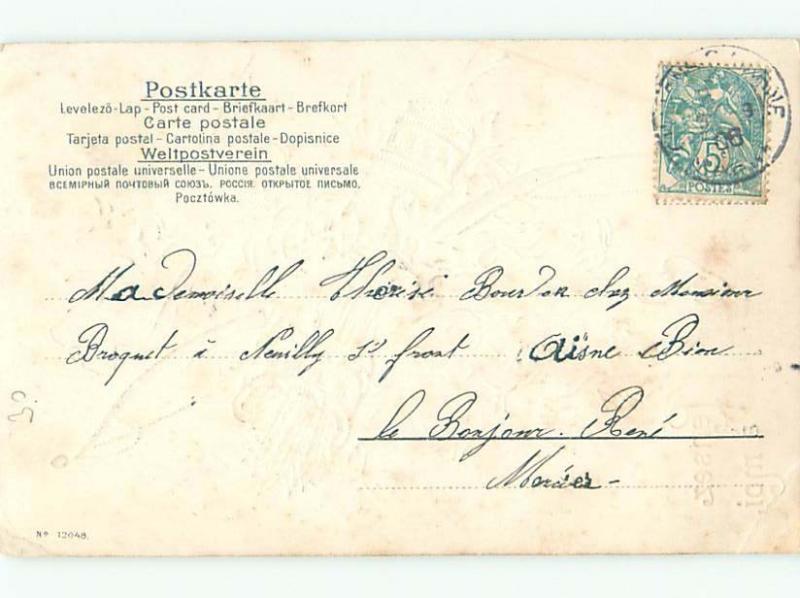 Postkarte
Levelező-Lap - Post card - Briefkaart - Brefkort
Carte postale
Tarjeta postal - Cartolina postale - Dopisnice
Weltpostverein
Union postale universelle - Unione postale universale
ВСЕМІРНЫЙ ПОЧТОВЫЙ СОЮЗЪ. РОССІЯ. ОТКРЫТОЕ ПИСЬМО.
Pocztówka.
3
06
5
POSTES
Mademoiselle Thérèse Bourdon chez Monsieur
Broquet à Neuilly St front Aisne Bien
le Bonjour. René
Mercier -
30
No 12048.